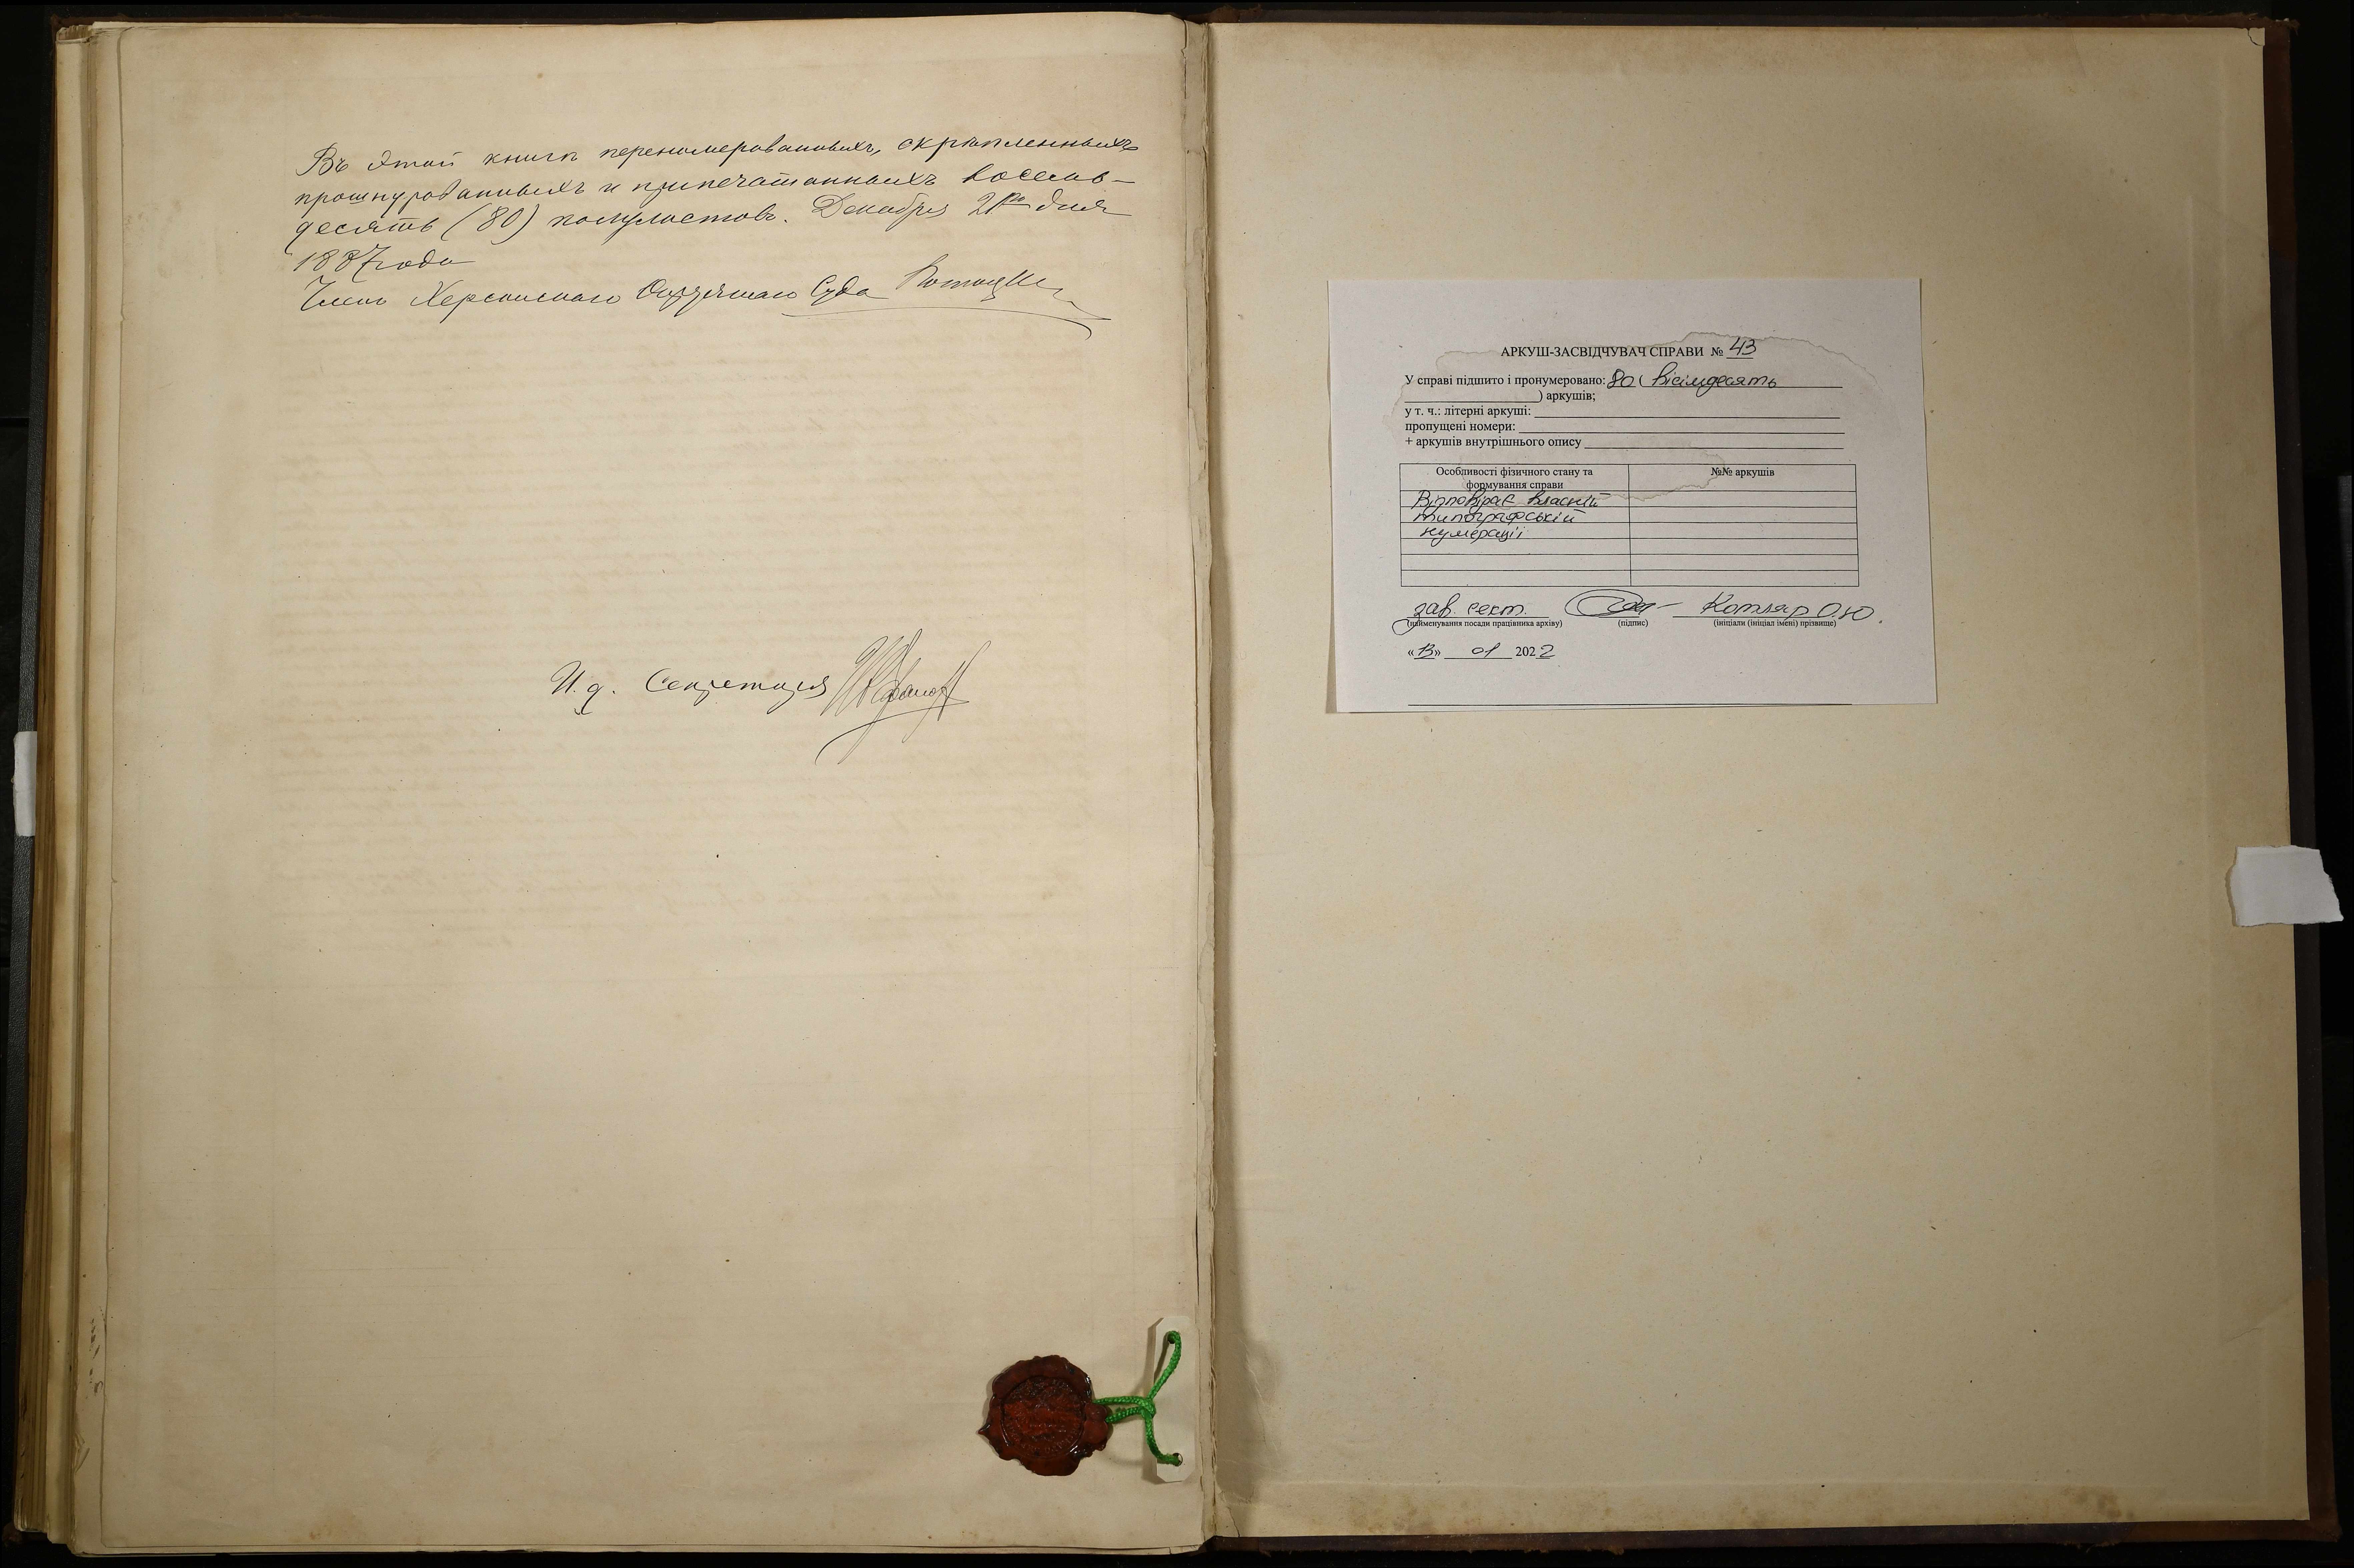 Въ этой книгѣ перенумерованныхъ, скрѣпленныхъ
прошнурованныхъ и припечатанныхъ восемь-
десятъ (80) полулистовъ. Декабря 21го дня
1887 года
Членъ Херсонскаго Окружнаго Суда
И. д. Секретаря
АРКУШ-ЗАСВІДЧУВАЧ СПРАВИ № 43
У справі підшито і пронумеровано: 80 ( вісімдесять
) аркушів;
у т. ч.: літерні аркуші:
пропущені номери:
+ аркушів внутрішнього опису
Особливості фізичного стану та
формування справи
№№ аркушів
Відповідає власній
типографській
нумерації
зав. сект. Котляр О.Ю.
(найменування посади працівника архіву) (підпис) (ініціали (ініціал імені) прізвище)
«13» 01 2022